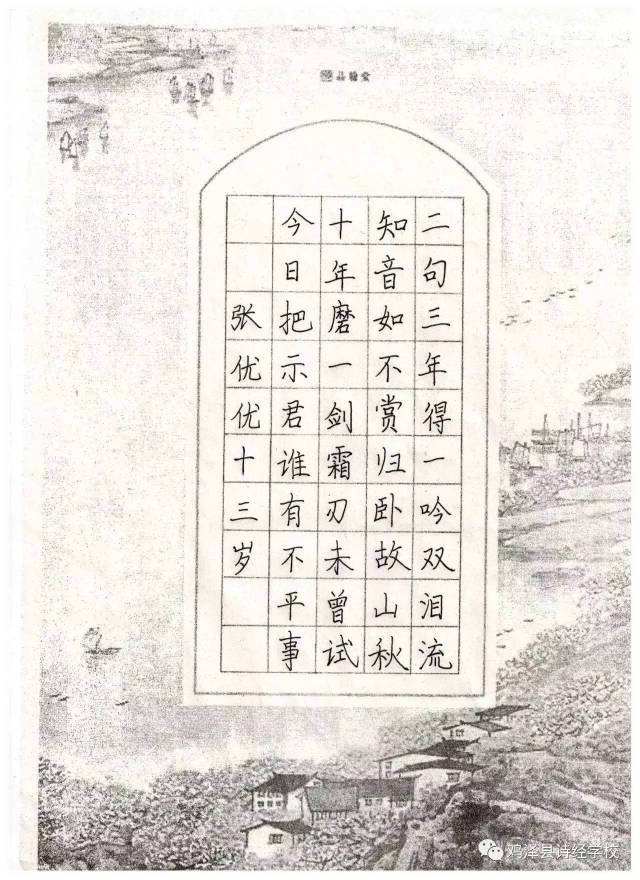 二句三年得一吟双泪流
知音如不赏归卧故山秋
十年磨一剑霜刃未曾试
今日把示君谁有不平事
张优优十三岁
鸡泽县诗经学校